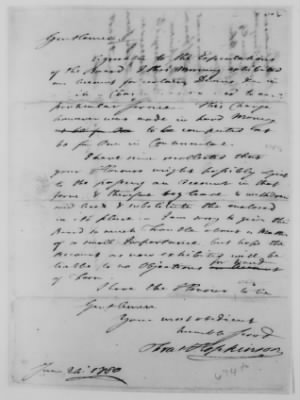 Gentlemen
Agreeable to the Expectations
of the Board, I this Morning exhibited
an Account for
in
particular Form. This Charge
however was made in hard Money
to be computed at
60 for One in Continental.
I have since recollected that
your Honours might possibly object
to the passing an Account in that
form & therefore beg leave to withdraw
said Acct & substitute the enclosed
in its place. I am sorry to give the
Board so much Trouble about a Matter
of so small Importance, but hope the
Account as now exhibited will be
liable to no Objections
of Form.
I have the Honour to be
Gentlemen
Your most obedient
humble Servt
Fras Hopkinson
June 24th 1780